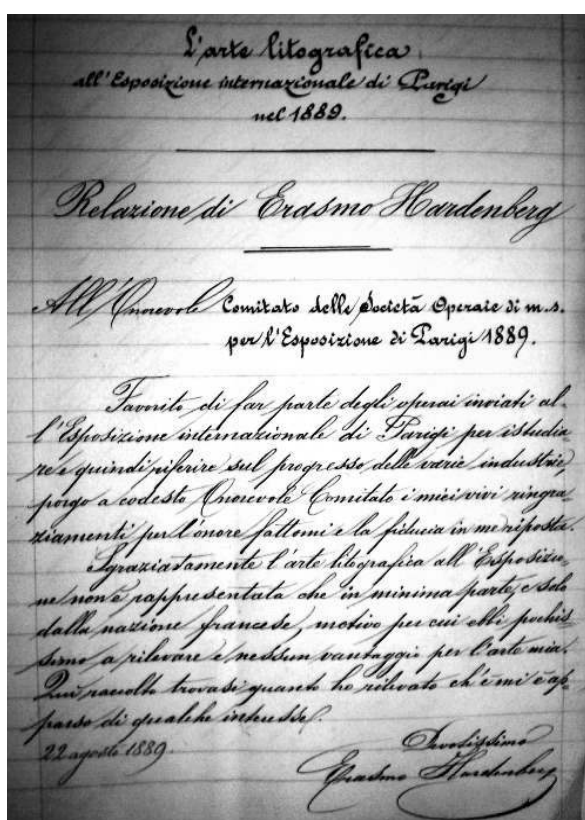 L'arte litografica
all'Esposizione internazionale di Parigi
nel 1889.
Relazione di Erasmo Hardenberg
All'Onorevole Comitato delle Società Operaie di m. s.
per l'Esposizione di Parigi 1889.
Favorito di far parte degli operai inviati al-
l'Esposizione internazionale di Parigi per istudia-
re e quindi riferire sul progresso delle varie industrie,
porgo a codesto Onorevole Comitato i miei vivi ringra-
ziamenti per l'onore fattomi e la fiducia in me riposta.
Sgraziatamente l'arte litografica all'Esposizio-
ne non è rappresentata che in minima parte, e solo
dalla nazione francese, motivo per cui ebbi pochis-
simo a rilevare e nessun vantaggio per l'arte mia.
Quì raccolto trovasi quanto ho rilevato ch'è mi è ap-
parso di qualche interesse.
22 agosto 1889.
Devotissimo
Erasmo Hardenberg